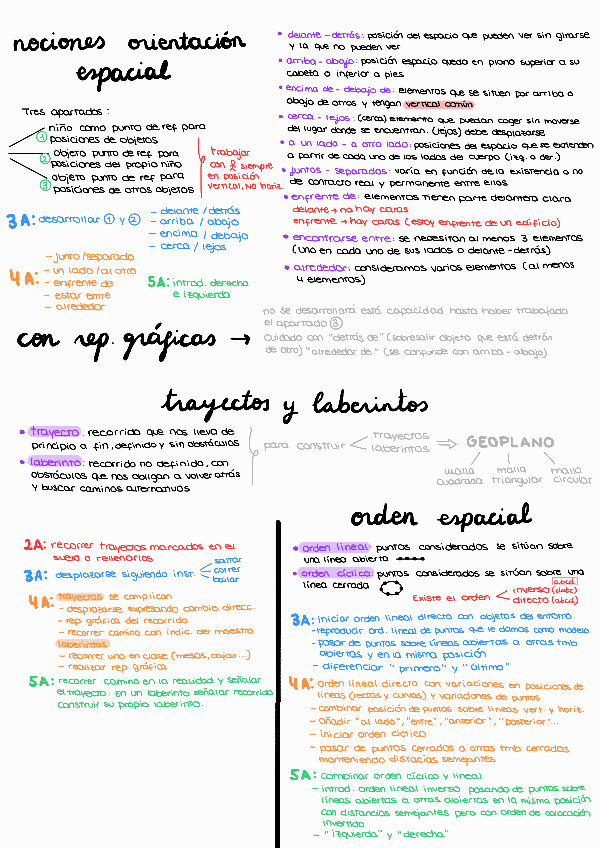 nociones orientación
espacial
Tres apartados:
① niño como punto de ref para
posiciones de objetos
② objeto punto de ref para
posiciones del propio niño
③ objeto punto de ref para
posiciones de otros objetos
trabajar
con siempre
en posición
vertical, NO horiz.
3A: desarrollar ① y ②
- delante / detrás
- arriba / abajo
- encima / debajo
- cerca / lejos
4A:
- junto / separado
- un lado / al otro
- enfrente de
- estar entre
- alrededor
5A: introd. derecha
e izquierda
• delante - detrás: posición del espacio que pueden ver sin girarse
y la que no pueden ver
• arriba - abajo: posición espacio queda en plano superior a su
cabeza o inferior a pies
• encima de - debajo de: elementos que se sitúen por arriba o
abajo de otros y tengan vertical común
• cerca - lejos: (cerca) elemento que puedan coger sin moverse
del lugar donde se encuentran. (lejos) debe desplazarse
• a un lado - a otro lado: posiciones del espacio que se extienden
a partir de cada uno de los lados del cuerpo (izq. o der.)
• juntos - separados: varía en función de la existencia o no
de contacto real y permanente entre ellos
• enfrente de: elementos tienen parte delantera clara
delante → no hay caras
enfrente → hay caras (estoy enfrente de un edificio)
• encontrarse entre: se necesitan al menos 3 elementos
(uno en cada uno de sus lados o delante - detrás)
• alrededor: consideramos varios elementos (al menos
4 elementos)
con rep. gráficas →
no se desarrollará está capacidad hasta haber trabajado
el apartado ③
cuidado con "detrás de" (sobresalir objeto que está detrás
de otro) "alrededor de" (se confunde con arriba - abajo)
trayectos y laberintos
• trayecto: recorrido que nos lleva de
principio a fin, definido y sin obstáculos
• laberinto: recorrido no definido, con
obstáculos que nos obligan a volver atrás
y buscar caminos alternativos
para construir
trayectos
laberintos
⇒ GEOPLANO
malla
cuadrada
malla
triangular
malla
circular
2A: recorrer trayectos marcados en el
suelo o rellenarlos
3A: desplazarse siguiendo instr.
saltar
correr
bailar
4A: trayectos se complican
- desplazarse expresando cambio direcc.
- rep gráfica del recorrido
- recorrer camino con indic. del maestro
laberintos
- recorrer uno en clase (mesas, cajas...)
- realizar rep. gráfica
5A: recorrer camino en la realidad y señalar
el trayecto. en un laberinto señalar recorrido
construir su propio laberinto.
orden espacial
• orden lineal: puntos considerados se sitúan sobre
una línea abierta
• orden cíclico: puntos considerados se sitúan sobre una
línea cerrada
Existe el orden
(abcd)
inverso (dabc)
directo (abcd)
3A: iniciar orden lineal directo con objetos del entorno
- reproducir ord. lineal de puntos que le damos como modelo
- pasar de puntos sobre líneas abiertas a otras tmb
abiertas y en la misma posición
- diferenciar "primero" y "último"
4A: Orden lineal directo con variaciones en posiciones de
líneas (rectas y curvas) y variaciones de puntos
- combinar posición de puntos sobre líneas vert. y horiz.
- añadir "al lado", "entre", "anterior", "posterior"...
- iniciar orden cíclico
- pasar de puntos cerrados a otras tmb cerradas
manteniendo distacias semejantes
5A: combinar orden cíclico y lineal
- introd. orden lineal inverso pasando de puntos sobre
líneas abiertas a otras abiertas en la misma posición
con distancias semejantes pero con orden de colocación
invertido
- "izquierda" y "derecha"